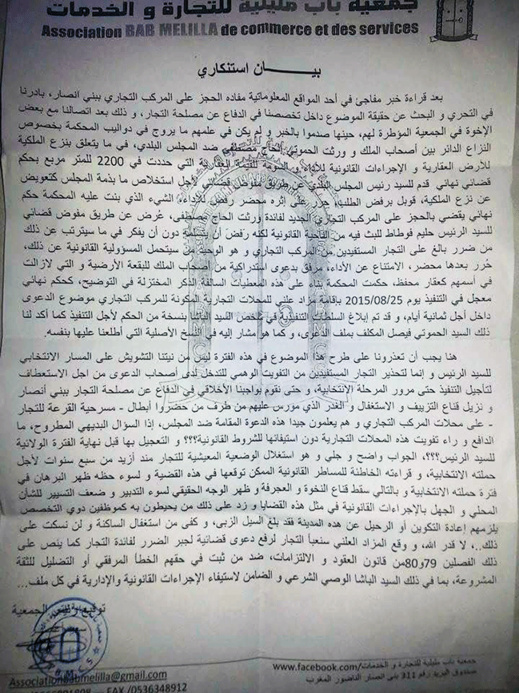 جمعية باب مليلية للتجارة و الخدمات
Association BAB MELILLA de commerce et des services
بيـــــان استنكاري
بعد قراءة خبر مفاجئ في أحد المواقع المعلوماتية مفاده الحجز على المركب التجاري ببني انصار، بادرنا
في التحري و البحث عن حقيقة الموضوع داخل تخصصنا في الدفاع عن مصلحة التجار، و ذلك بعد اتصالنا مع بعض
الإخوة في الجمعية المؤطرة لهم، حينها صدموا بالخبر و لم يكن في علمهم ما يروج في دواليب المحكمة بخصوص
النزاع الدائر بين أصحاب الملك و ورثت الحموتي الحاج مصطفى ضد المجلس البلدي، في ما يتعلق بنزع الملكية
للأرض العقارية و الإجراءات القانونية للأداء، و الحوية للبقعة العقارية التي حددت في 2200 للمتر مربع بحكم
قضائي نهائي قدم للسيد رئيس المجلس البلدي عن طريق مفوض قضائي استخلاص ما بذمة المجلس كتعويض
عن نزع الملكية، قوبل برفض الطلب، حرر على إثره محضر رفض للأداء، الشيء الذي بنت عليه المحكمة حكم
نهائي يقضي بالحجز على المركب التجاري الجديد لفائدة ورثت الحاج مصطفى، عُرض عن طريق مفوض قضائي
للسيد الرئيس حليم فوطاط للبث فيه من الناحية القانونية لكنه رفض أن يتسلمه دون أن يفكر في ما سيترتب عن ذلك
من ضرر بالغ على التجار المستفيدين من المركب التجاري و هو الوحيد من سيتحمل المسؤولية القانونية عن ذلك،
حُرر بعدها محضر، الامتناع عن الأداء، مرفق بدعوى استدراكية من أصحاب الملك للبقعة الأرضية و التي لازالت
في أسمهم كعقار محفظ، حكمت المحكمة بناء على هذه المعطيات السالفة الذكر المختزلة في التوضيح، كحكم نهائي
معجل في التنفيذ يوم 2015/08/25 بإقامة مزاد علني للمحلات التجارية المكونة للمركب التجاري موضوع الدعوى
داخل أجل ثمانية أيام، و قد تم إبلاغ السلطات التنفيذية في شخص السيد الباشا بنسخة من الحكم لأجل التنفيذ كما أكد لنا
ذلك السيد الحموتي فيصل المكلف بملف الدعوى، و كما هو مشار إليه في النسخ الأصلية التي أطلعنا عليها بنفسه.
هنا يجب أن تعذرونا على طرح هذا الموضوع في هذه الفترة ليس من نيتنا التشويش على المسار الانتخابي
للسيد الرئيس و إنما لتحذير التجار المستفيدين من التفويت الوهمي للتدخل لدى أصحاب الدعوى من اجل الاستعطاف
لتأجيل التنفيذ حتى مرور المرحلة الإنتخابية، و حتى نقوم بواجبنا الأخلاقي في الدفاع عن مصلحة التجار ببني أنصار
و نزيل قناع التزييف و الاستغفال و الغدر الذي مورس عليهم من طرف من حضروا أبطال - مسرحية القرعة للتجار
- على محلات المركب التجاري و هم يعلمون جيدا هذه الدعوة المقامة ضد المجلس، إذا السؤال البديهي المطروح، ما
الدافع و راء تفويت هذه المحلات التجارية دون استيفائها للشروط القانونية؟؟؟ و التعجيل بها قبل نهاية الفترة الولائية
للسيد الرئيس؟؟؟، الجواب واضح و جلي و هو استغلال الوضعية المعيشية للتجار منذ أزيد من سبع سنوات لأجل
حملته الانتخابية، و قراءته الخاطئة للمساطر القانونية الممكن توقعها في هذه القضية و لسوء حظه ظهر البرهان في
فترة حملته الانتخابية و بالتالي سقط قناع النخوة و العجرفة و ظهر الوجه الحقيقي لسوء التدبير و ضعف التسيير للشأن
المحلي و الجهل بالإجراءات القانونية في مثل هذه القضايا و زد على ذلك من يحيطون به كموظفين دوي التخصص
يلزمهم إعادة التكوين أو الرحيل عن هذه المدينة فقد بلغ السيل الزبى، و كفى من استغفال الساكنة و لن نسكت على
ذلك..، لا قدر الله، و وقع المزاد العلني سنعبأ التجار لرفع دعوى قضائية لجبر الضرر لفائدة التجار كما ينص على
ذلك الفصلين 79و80من قانون العقود و الالتزامات، ضد من ثبت في حقهم الخطأ المرفقي أو التضليل للثقة
المشروعة، بما في ذلك السيد الباشا الوصي الشرعي و الضامن لاستيفاء الإجراءات القانونية والإدارية في كل ملف...
توقيع رئيس الجمعية
جمعية باب مليلية للتجارة و الخدمات/www.facebook.com
Associationbabmelilla@gmail.com
صندوق البريد رقم 311 بني انصار الناضور المغرب
FAX /0536348912